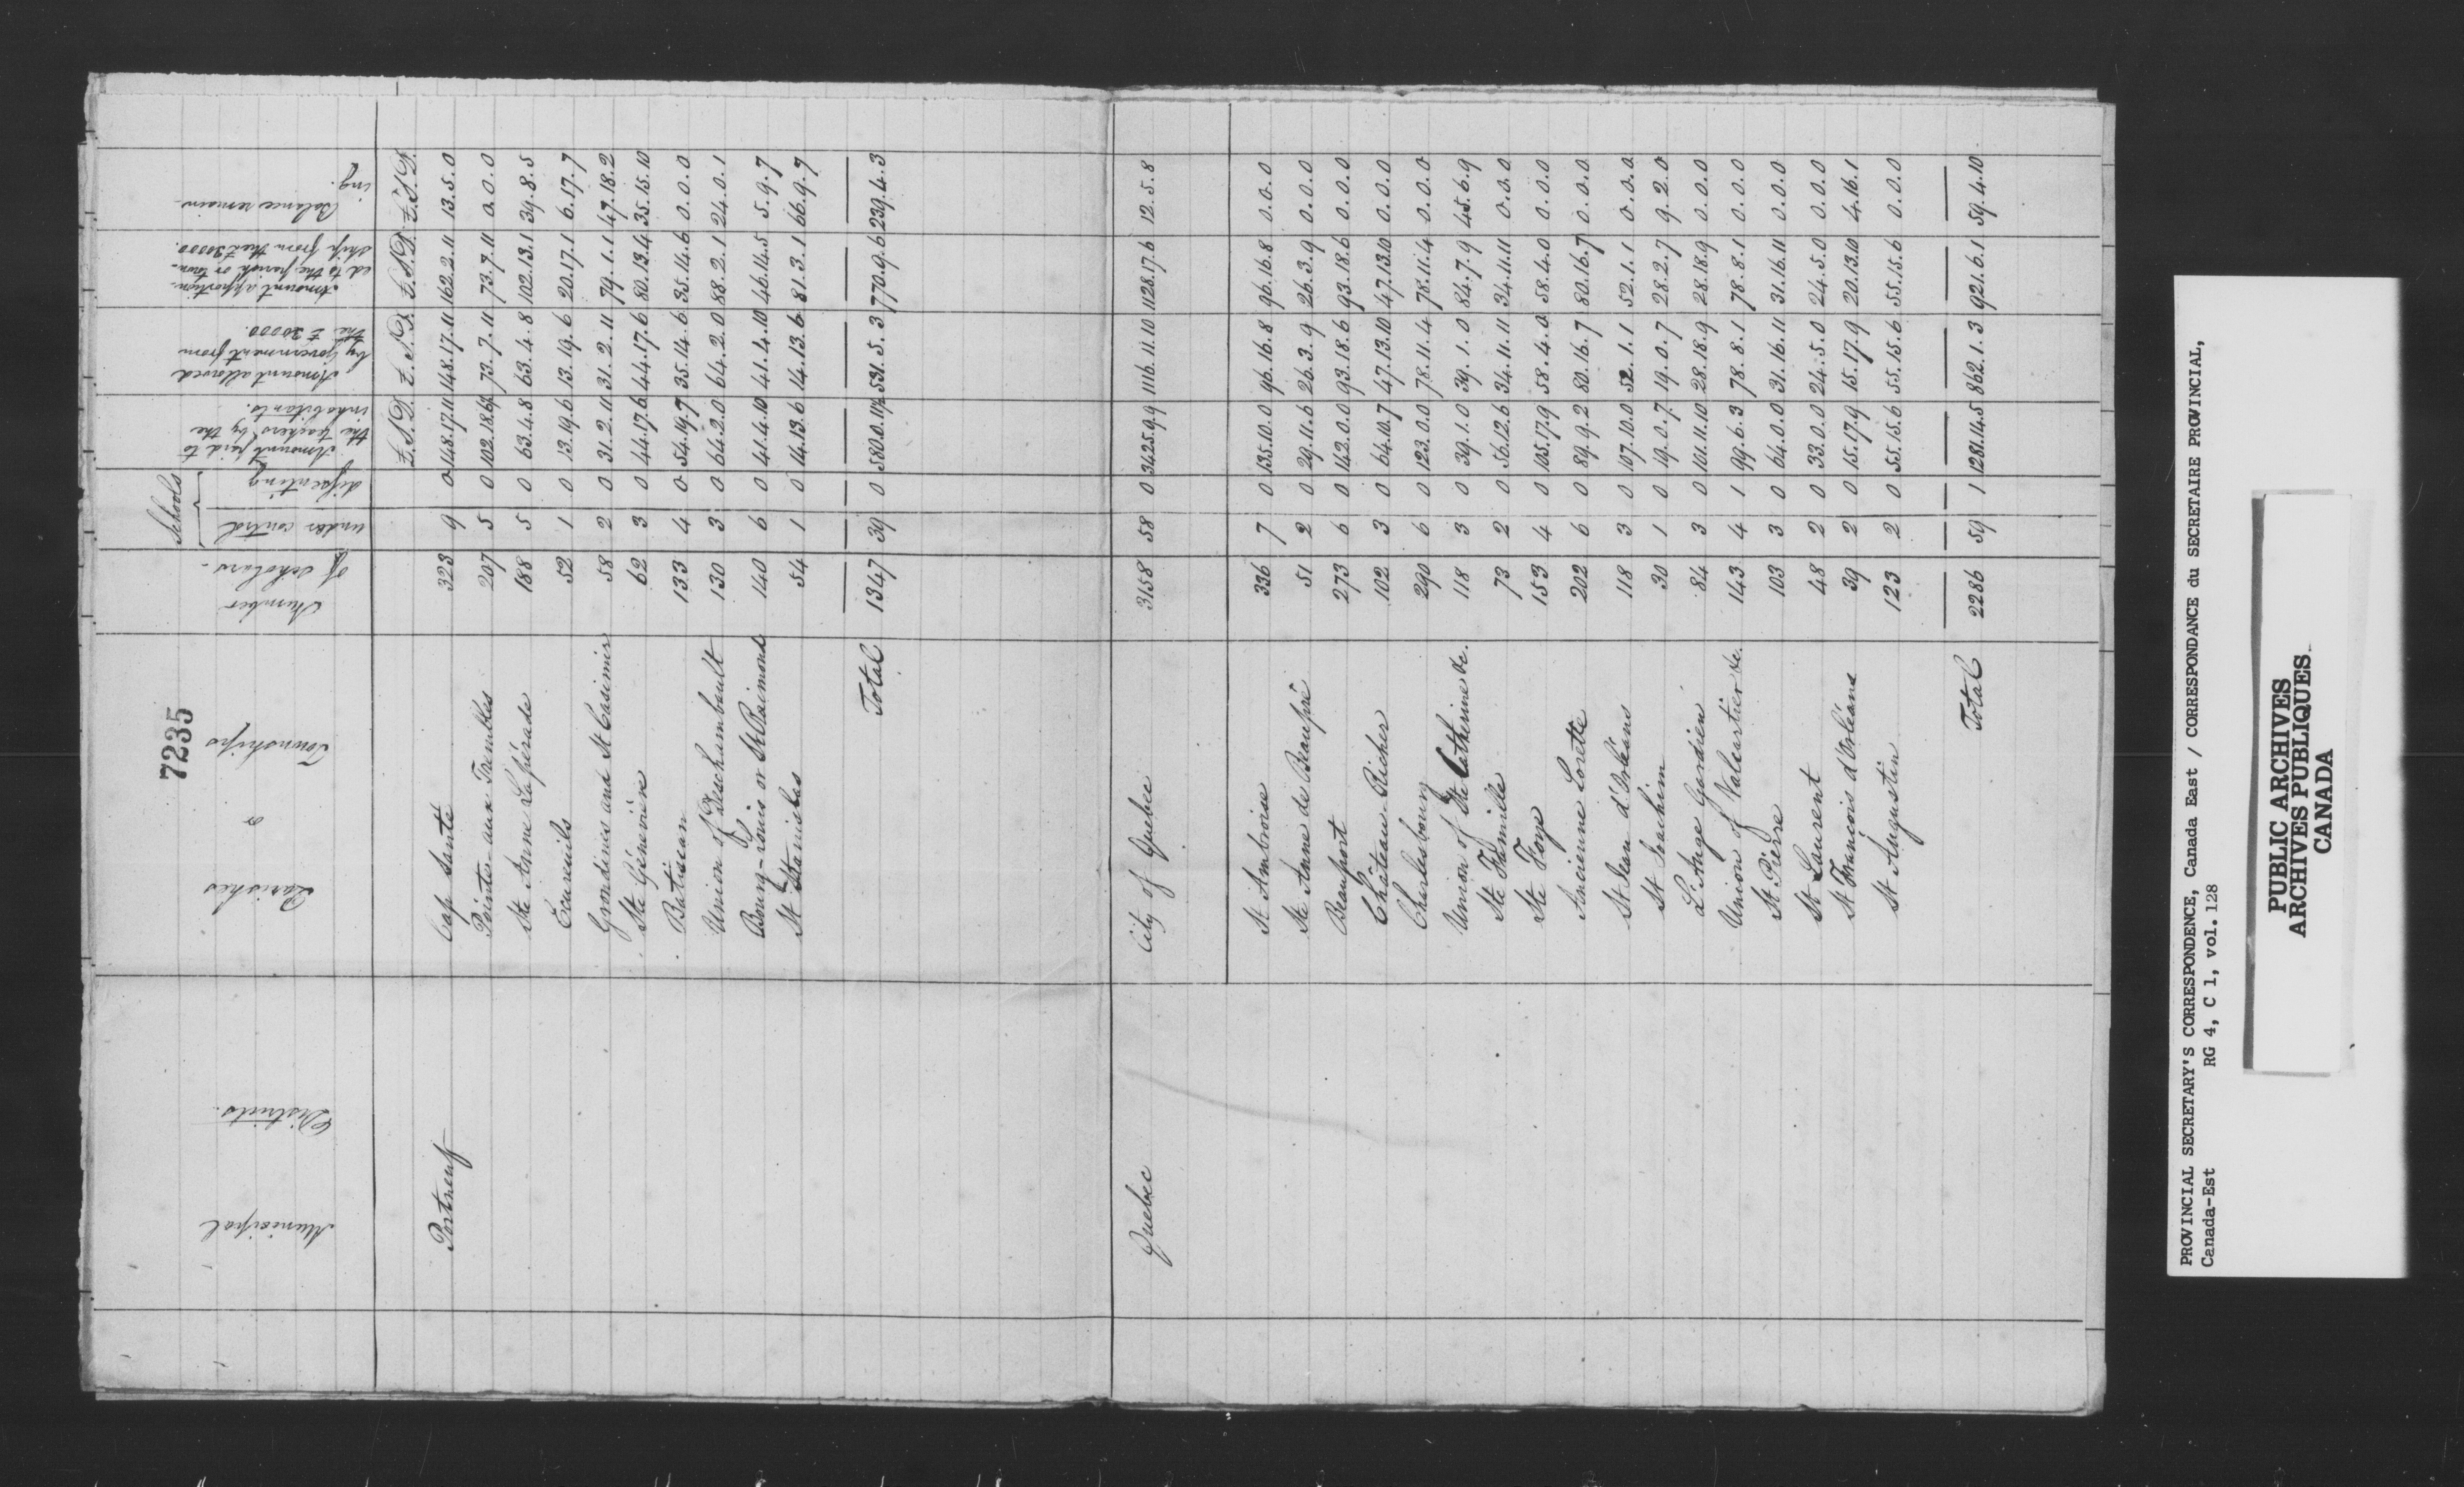 7235
Municipal Districts.
Parishes or Townships
Number of Scholars.
Schools
under control
dissenting
Amount paid to the teachers by the inhabitants.
Amount allowed by Government from the £30000.
Amount apportioned to the parish or township from the £30000.
Balance remaining.
£.S.D. £.S.D. £.S.D. £.S.D.
Portneuf Cap Santé 323 9 0 148.17.11 148.17.11 162.2.11 13.5.0
Pointe-aux-Trembles 207 5 0 102.18.6½ 73.7.11 73.7.11 0.0.0
Ste Anne Lapérade 188 5 0 63.4.8 63.4.8 102.13.1 39.8.5
Ecureuils 52 1 0 13.19.6 13.19.6 20.17.1 6.17.7
Grondines and St Casimir 58 2 0 31.2.11 31.2.11 79.1.1 47.18.2
Ste Géneviève 62 3 0 44.17.6 44.17.6 80.13.4 35.15.10
Batiscan 133 4 0 54.19.7 35.14.6 35.14.6 0.0.0
Union of Deschambault 130 3 0 64.2.0 64.2.0 88.2.1 24.0.1
Bourg-Louis or St Raimond 140 6 0 41.4.10 41.4.10 46.14.5 5.9.7
St Stanislas 54 1 0 14.13.6 14.13.6 81.3.1 66.9.7
Total 1347 39 0 580.0.11½ 531.5.3 770.9.6 239.4.3
Quebec City of Quebec 3158 58 0 3425.9.9 1116.11.10 1128.17.6 12.5.8
St Ambroise 336 7 0 135.10.0 96.16.8 96.16.8 0.0.0
Ste Anne de Beaupré 51 2 0 29.11.6 26.3.9 26.3.9 0.0.0
Beauport 273 6 0 142.0.0 93.18.6 93.18.6 0.0.0
Château-Richer 102 3 0 64.10.7 47.13.10 47.13.10 0.0.0
Charlesbourg 290 6 0 123.0.0 78.11.4 78.11.4 0.0.0
Union of Ste Catherine &c. 118 3 0 39.1.0 39.1.0 84.7.9 45.6.9
Ste Famille 73 2 0 56.12.6 34.11.11 34.11.11 0.0.0
Ste Foye 153 4 0 105.17.9 58.4.0 58.4.0 0.0.0
Ancienne Lorette 202 6 0 89.9.2 80.16.7 80.16.7 0.0.0
St Jean d'Orléans 118 3 0 107.10.0 52.1.1 52.1.1 0.0.0
St Joachim 30 1 0 19.0.7 19.0.7 28.2.7 9.2.0
L'Ange Gardien 84 3 0 101.11.10 28.18.9 28.18.9 0.0.0
Union of Valcartier &c. 143 4 1 99.6.3 78.8.1 78.8.1 0.0.0
St Pierre 103 3 0 64.0.0 31.16.11 31.16.11 0.0.0
St Laurent 48 2 0 33.0.0 24.5.0 24.5.0 0.0.0
St François d'Orléans 39 2 0 15.17.9 15.17.9 20.13.10 4.16.1
St Augustin 123 2 0 55.15.6 55.15.6 55.15.6 0.0.0
Total 2286 59 1 1281.14.5 862.1.3 921.6.1 59.4.10
PROVINCIAL SECRETARY'S CORRESPONDENCE, Canada East / CORRESPONDANCE du SECRETAIRE PROVINCIAL,
Canada-Est RG 4, C 1, vol. 128
PUBLIC ARCHIVES
ARCHIVES PUBLIQUES
CANADA